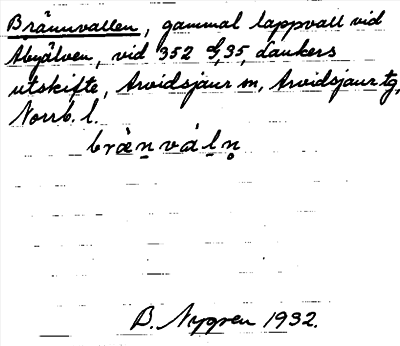 Brännvallen, gammal lappvall vid
Abyälven, vid 352 35, dankers
utskifte, Arvidsjaur sn, Arvidsjaur tg,
Norrb. l.
brän̲våḻn̥
B. Nygren 1932.